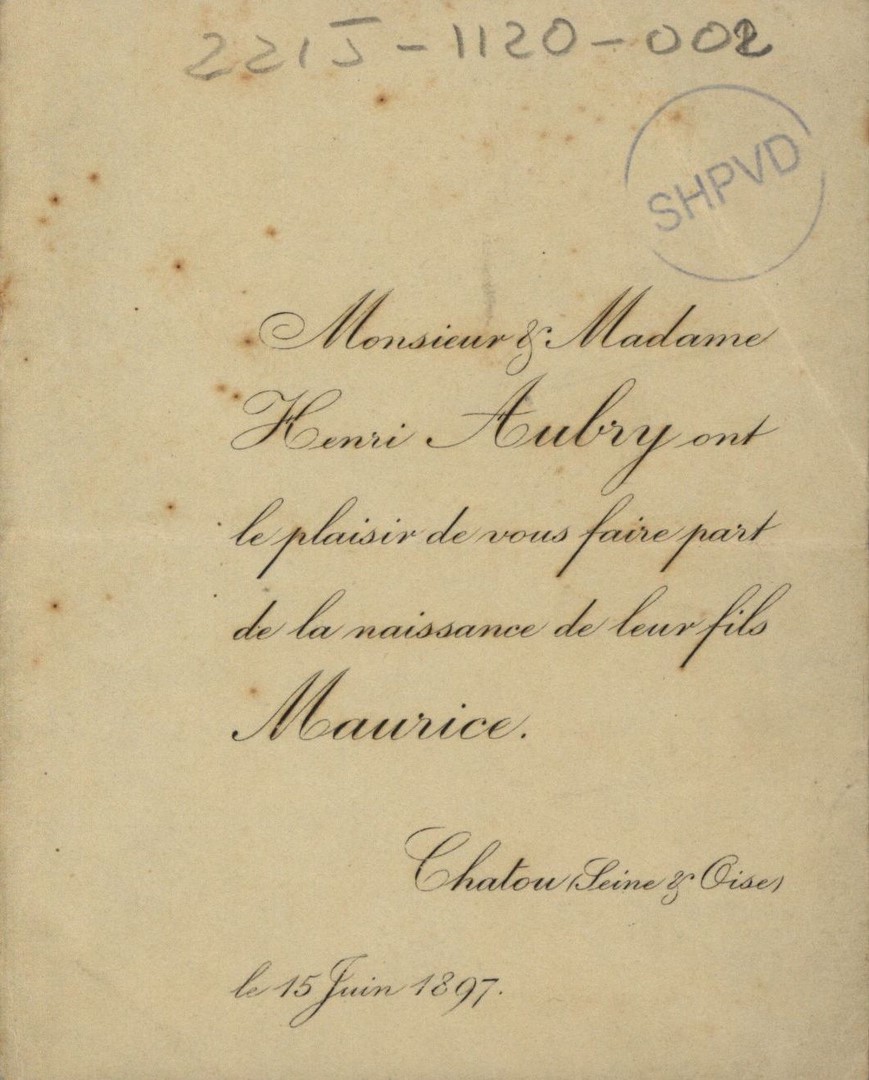 221J-1120-002
SHPVD
Monsieur & Madame
Henri Aubry ont
le plaisir de vous faire part
de la naissance de leur fils
Maurice.
Chatou (Seine & Oise)
le 15 Juin 1897.